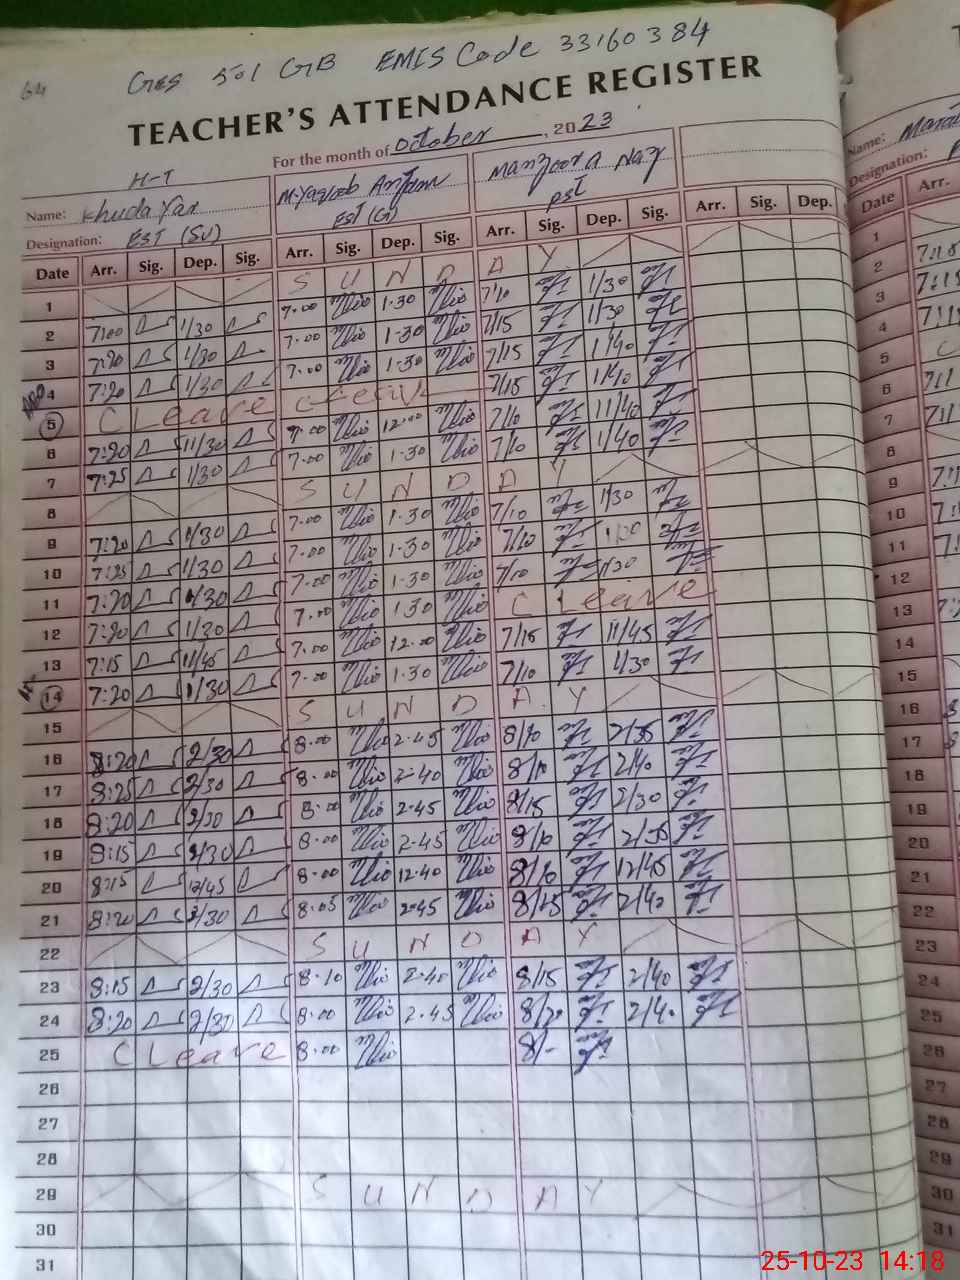 64
GES 501 GB EMIS Code 33160384
TEACHER'S ATTENDANCE REGISTER
For the month of October, 2023
H-T
Name: Khuda Yar M.Yaqoob Anjum Manzoora Naz
Designation: EST (SV) EST (G) PST
Date Arr. Sig. Dep. Sig. Arr. Sig. Dep. Sig. Arr. Sig. Dep. Sig. Arr. Sig. Dep.
1 S U N D A Y
2 7:00 1/30 7.00 1.30 7/10 1/30
3 7:20 1/30 7.00 1.30 7/15 1/30
4 7:20 1/30 7.00 1.30 7/15 1/40
5 C Leave C Leave 7/15 1/40
6 7:20 11/30 7.00 12.00 7/10 11/40
7 7:25 1/30 7.00 1.30 7/10 1/40
8 S U N D A Y
9 7:20 1/30 7.00 1.30 7/10 1/30
10 7:25 1/30 7.00 1.30 7/10 1/30
11 7:20 1/30 7.00 1.30 7/10 1/30
12 7:20 1/30 7.00 1.30 C Leave
13 7:15 11/45 7.00 12.00 7/15 11/45
14 7:20 1/30 7.00 1.30 7/10 1/30
15 S U N D A Y
16 8:20 2/30 8.00 2.45 8/10 2/35
17 8:25 2/30 8.00 2.40 8/10 2/40
18 8:20 2/30 8.00 2.45 8/15 2/30
19 8:15 2/30 8.00 2.45 8/10 2/35
20 8:15 12/45 8.00 12.40 8/10 12/45
21 8:20 2/30 8.05 2.45 8/15 2/40
22 S U N D A Y
23 8:15 2/30 8.10 2.40 8/15 2/40
24 8:20 2/30 8.00 2.45 8/20 2/40
25 C Leave 8.00 8/-
26
27
28
29 S U N D A Y
30
31
Name:
Designation:
Date Arr.
1
2
3
4
5
6
7
8
9
10
11
12
13
14
15
16
17
18
19
20
21
22
23
24
25
26
27
28
29
30
31
25-10-23 14:18